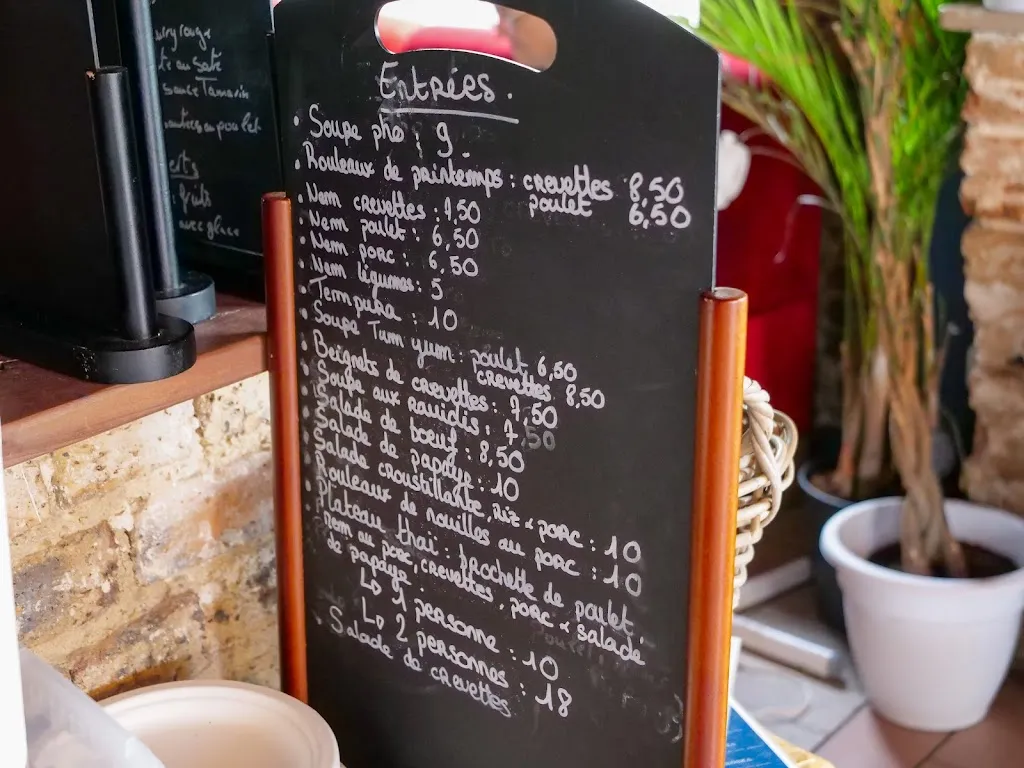 urry rouge
te au saté
sauce Tamarin
erts
fruits
avec glace
Entrées.
• Soupe pho : 9.
• Rouleaux de printemps : crevettes 8,50
poulet 6,50
• Nem crevettes : 7,50
• Nem poulet : 6,50
• Nem porc : 6,50
• Nem légumes : 5
• Tempura : 10
• Soupe Tum yum : poulet 6,50
crevettes 8,50
• Beignets de crevettes : 7,50
• Soupe aux raviolis : 7,50
• Salade de boeuf : 8,50
• Salade de papaye : 10
• Salade croustillante, Riz & porc : 10
• Rouleaux de nouilles au porc : 10
• Plateau thai : brochette de poulet,
nem au porc, crevettes, porc & salade
de papaye.
↳ 1 personne : 10
↳ 2 personnes : 18
• Salade de crevettes